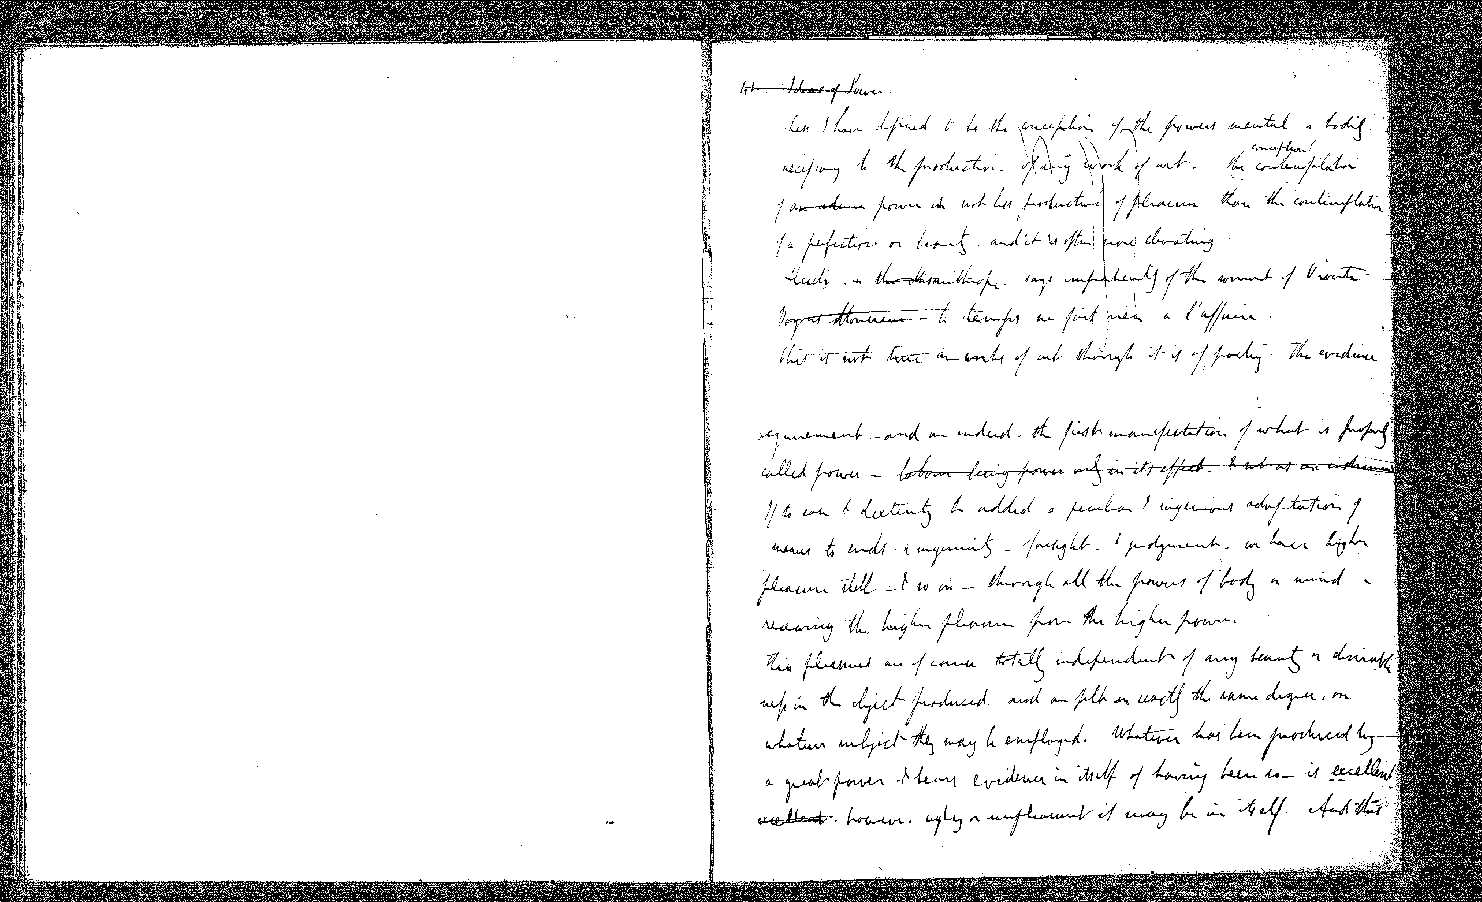 Ideas of Power.
I have defined to be the conception of the powers mental & bodily
necessary to the production of any work of art. the contemplation
conception
of power is not less productive of pleasure than the contemplation
of perfection or beauty. and it is often more elevating
says impatiently of the sonnet of Oronte
le temps ne fait rien a l'affaire.
this is not true in works of art though it is of poetry. The evidence
requirement - and are indeed the first manifestation of what is properly
called power - labour being power only in its effect. & not as an
If to dexterity be added a peculiar & ingenious adaptation of
means to ends. ingenuity - foresight - & judgment. we have higher
pleasure still - & so on - through all the powers of body or mind -
receiving the higher pleasure from the higher power.
this pleasures are of course totally independent of any beauty or desirable
ness in the object produced. and are felt in exactly the same degree, on
whatever subject they may be employed. Whatever has been produced by
a great power & bears evidence in itself of having been so - is excellent
excellent. however ugly or unpleasant it may be in itself. And this